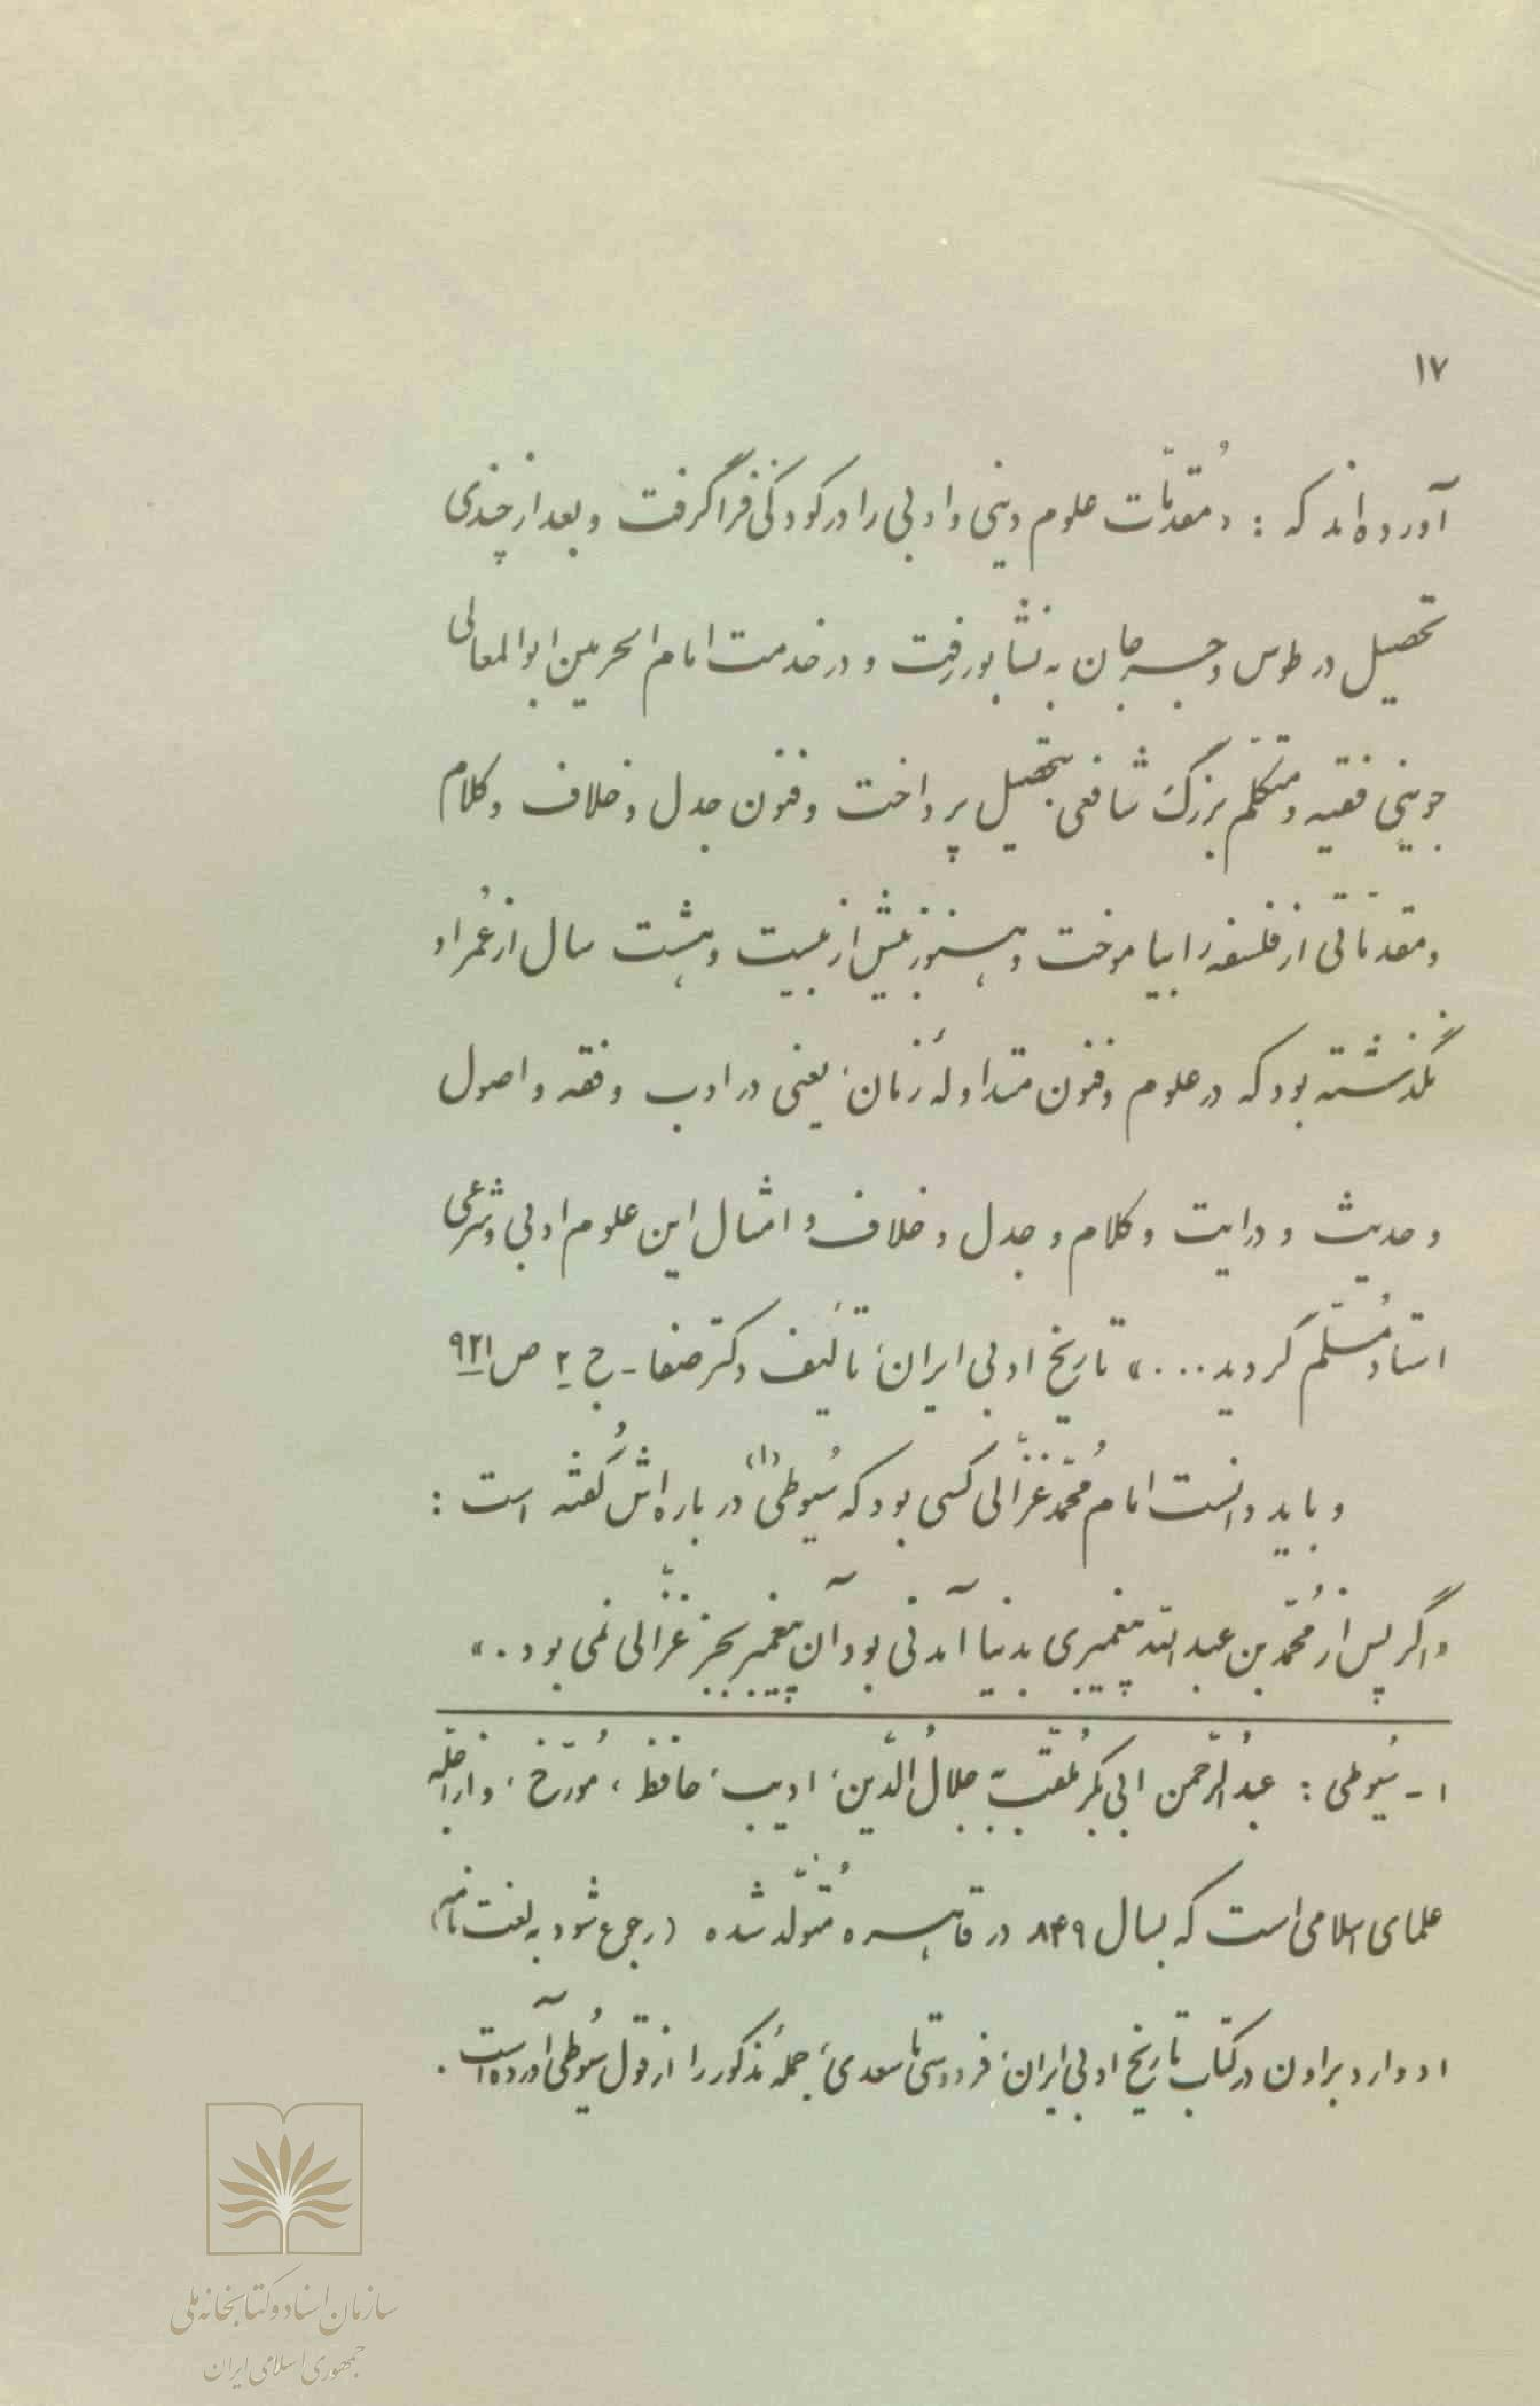 ۱۷
آورده‌اند که : «مُقدّمات علوم دینی و ادبی را در کودکی فراگرفت و بعد از چندی
تحصیل در طوس و جرجان به نشابور رفت و در خدمت امام الحرمین ابوالمعالی
جوینی فقیه و متکلّم بزرگ شافعی بتحصیل پرداخت و فنون جدل و خلاف و کلام
و مقدّماتی از فلسفه را بیاموخت و هنوز بیش از بیست و هشت سال از عُمر او
نگذشته بود که در علوم و فنون متداولهٔ زمان، یعنی در ادب و فقه و اصول
و حدیث و درایت و کلام و جدل و خلاف و امثال این علوم ادبی و شرعی
استاد مُسلّم گردید...» تاریخ ادبی ایران، تألیف دکتر صفا - ج ۲ ص ۹۲۱
و باید دانست امام مُحمّد غزّالی کسی بود که سُیوطی (۱) در باره‌اش گُفته است :
«اگر پس از مُحمّد بن عبدالله پیغمبری بدنیا آمدنی بود آن پیغمبر بجز غزّالی نمی بود.»
۱ - سُیوطی : عبدُالرّحمن ابی بکر مُلقّب بـ جلالُ الدّین، ادیب، حافظ، مُورّخ، و از اجلّه
علمای اسلامی است که بسال ۸۴۹ در قاهره مُتولّد شده (رجوع شود به لغت نامه)
ادوارد براون در کتاب تاریخ ادبی ایران، فردوسی تا سعدی، جملهٔ مذکور را از قول سُیوطی آورده است.
سازمان اسناد و کتابخانه ملی
جمهوری اسلامی ایران